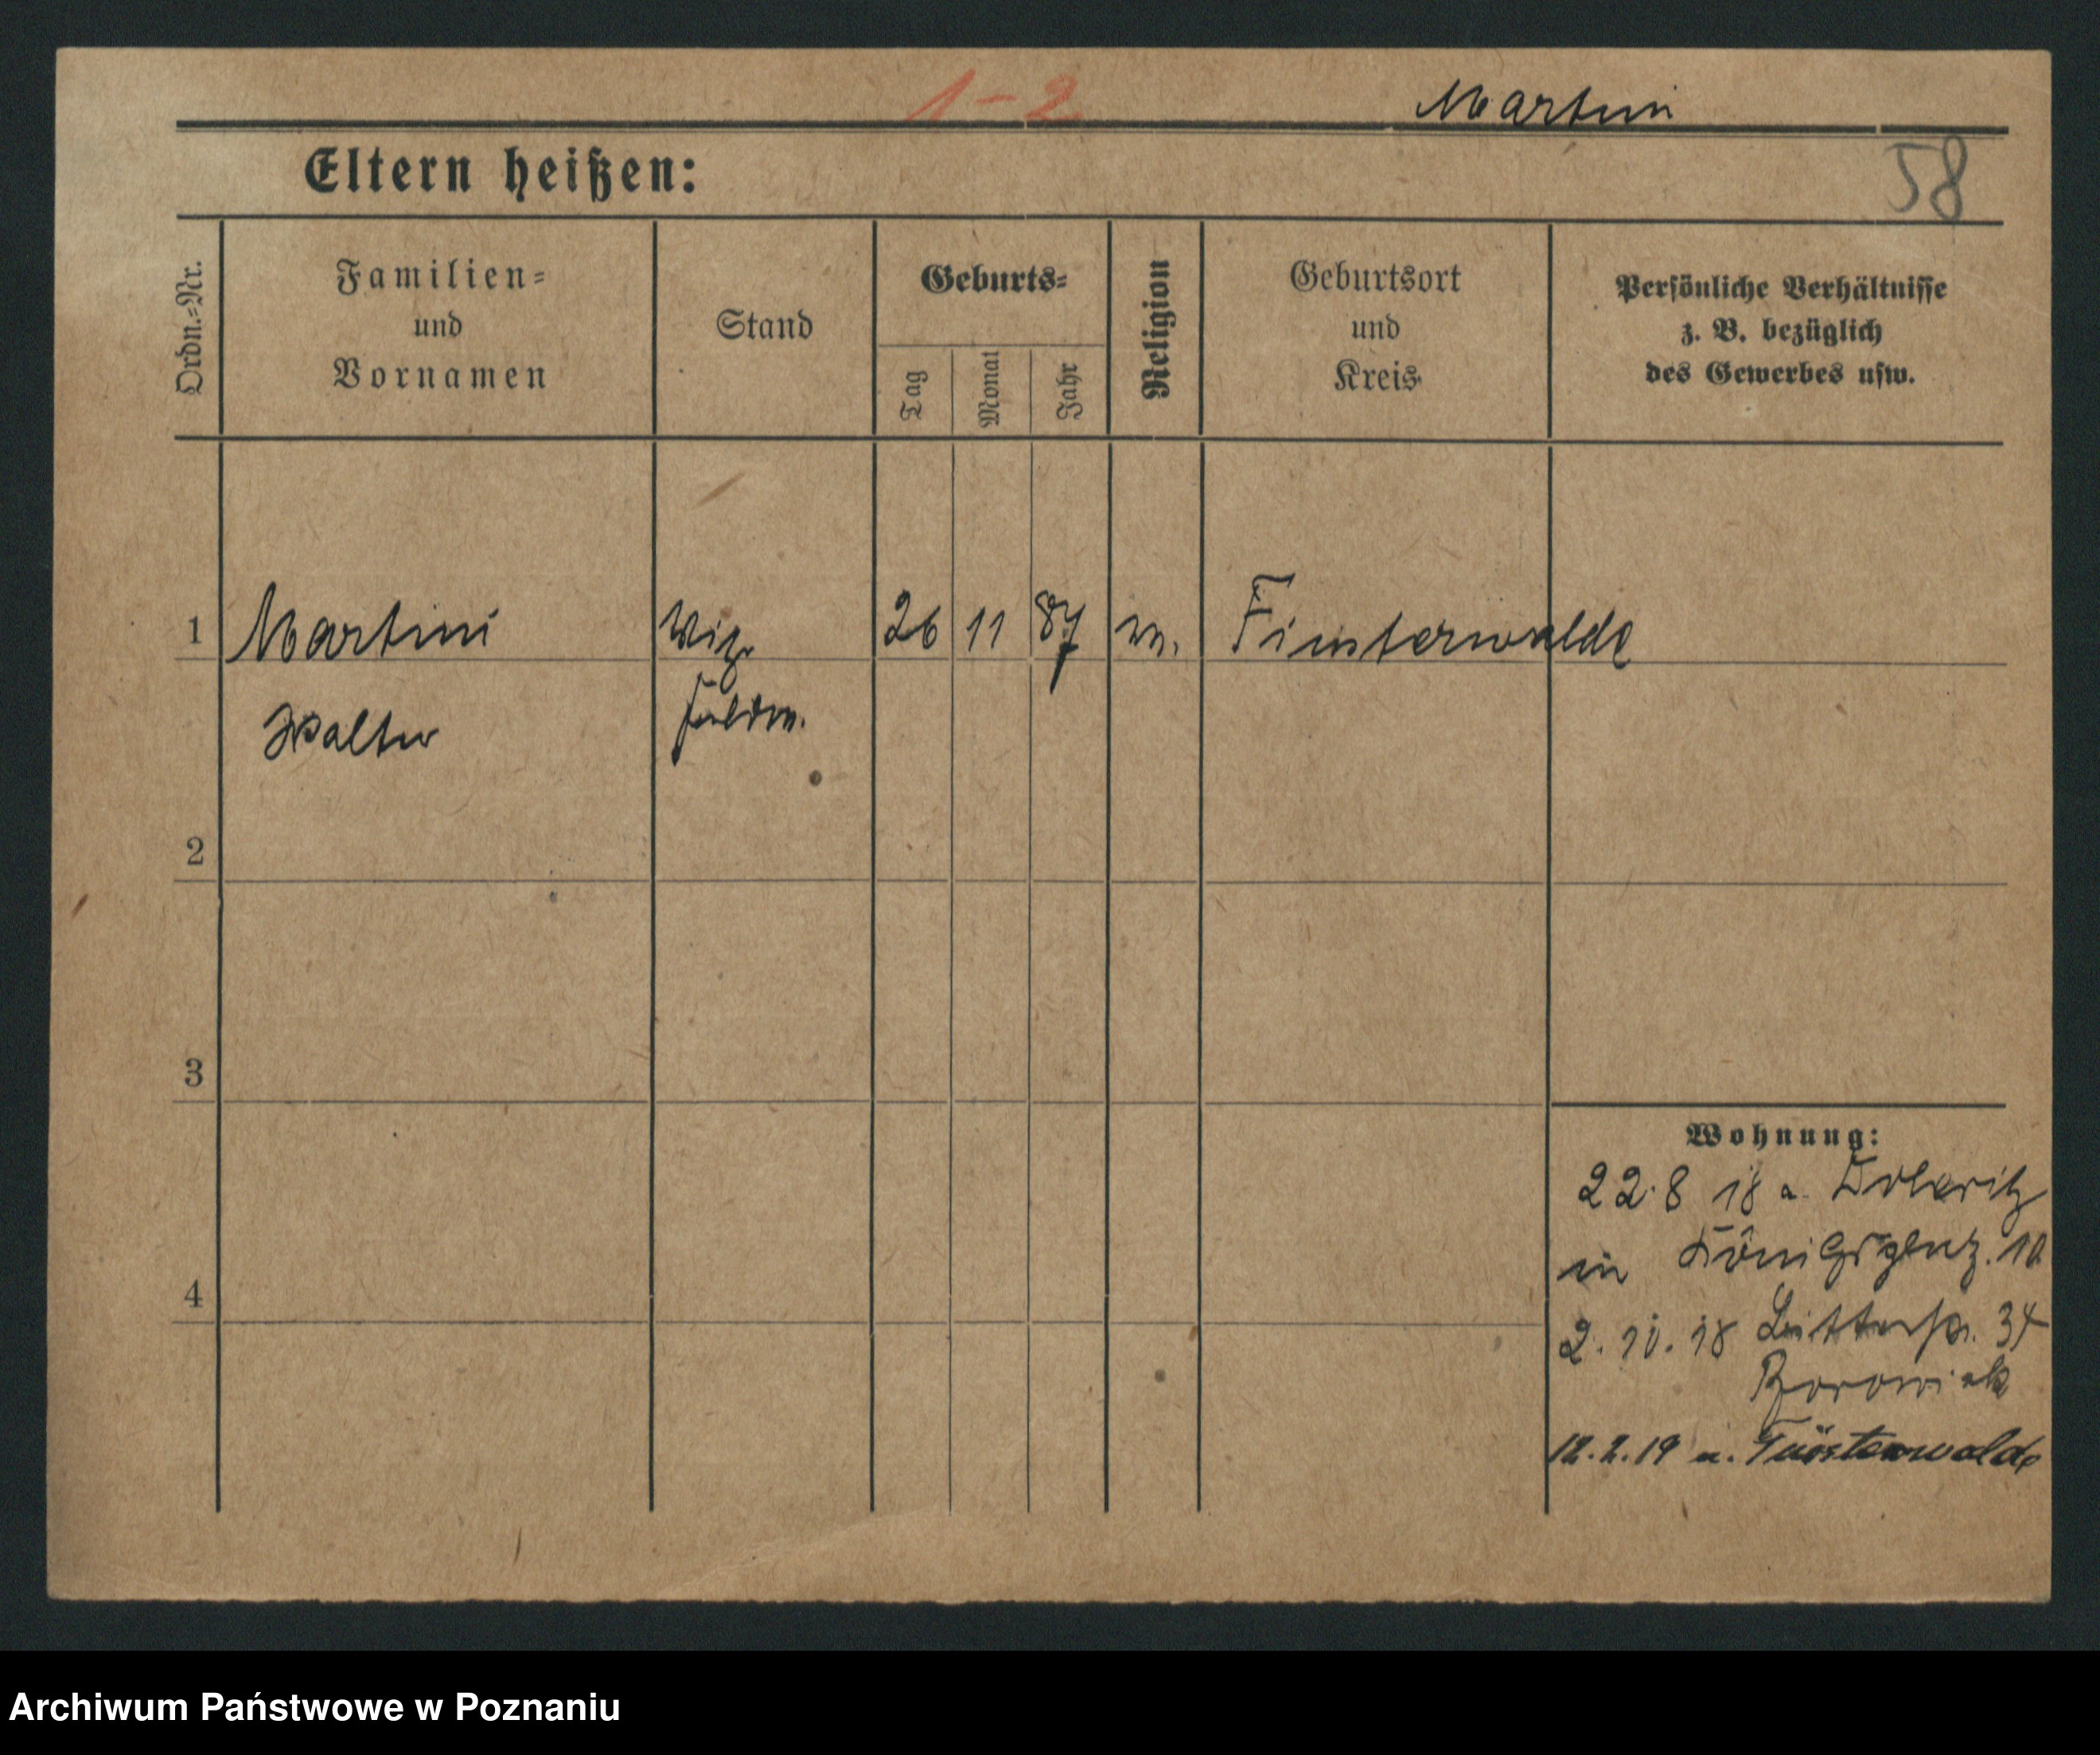 1-2
Martini
Eltern heißen:
58
Ordn.-Nr.
Familien-
und
Vornamen
Stand
Geburts-
Tag
Monat
Jahr
Religion
Geburtsort
und
Kreis
Persönliche Verhältnisse
z. B. bezüglich
des Gewerbes usw.
1 Martini 26 11 87 Finsterwalde
Walter
2
3
4
Wohnung:
22.8 18 a. Döberitz
in Königspl. 10
2. 10. 18 34
Borowiak
12.2.19 n. Finsterwalde
Archiwum Państwowe w Poznaniu